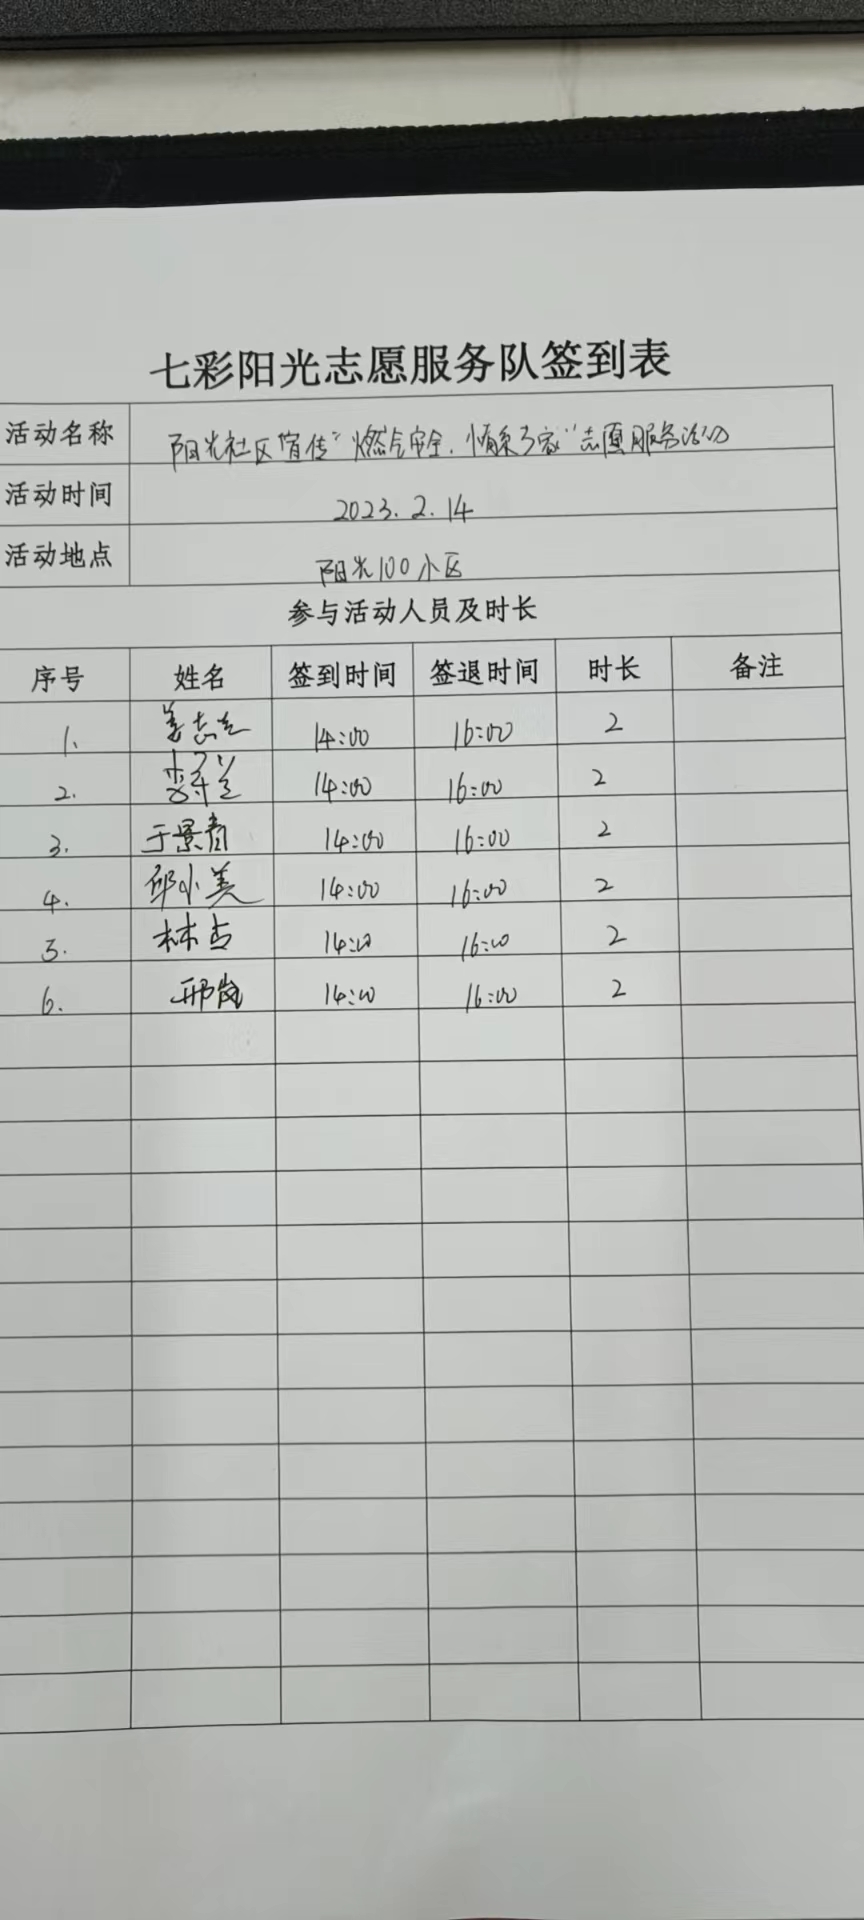 七彩阳光志愿服务队签到表
活动名称 阳光社区宣传"燃气安全,情系万家"志愿服务活动
活动时间 2023.2.14
活动地点 阳光100小区
参与活动人员及时长
序号 姓名 签到时间 签退时间 时长 备注
1. 姜志 14:00 16:00 2
2. 李 兰 14:00 16:00 2
3. 于景青 14:00 16:00 2
4. 邱小美 14:00 16:00 2
5. 林吉 14:00 16:00 2
6. 邢岚 14:00 16:00 2